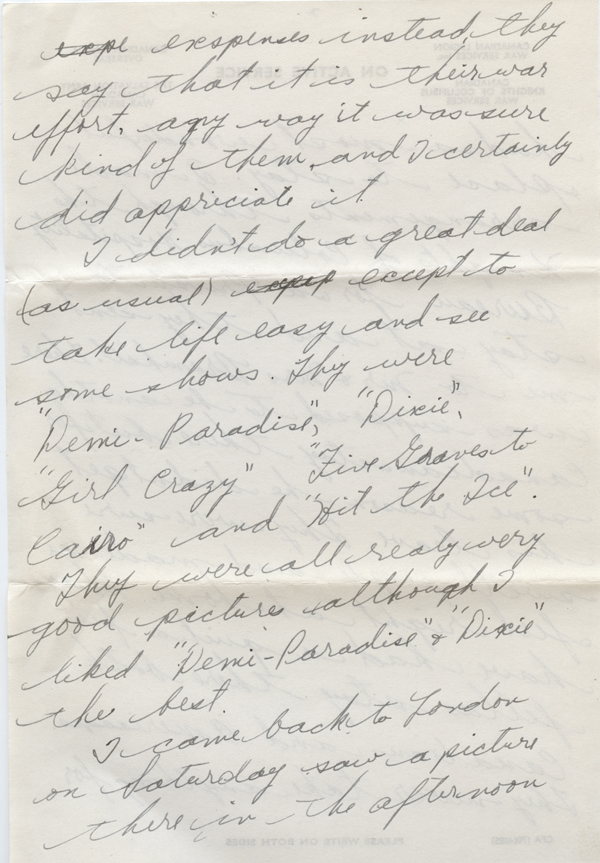 expe exspenses instead, they
say that it is their war
effort. any way it was sure
kind of them, and I certainly
did appriciate it.
I didn't do a great deal
(as usual) except to
take life easy and see
some shows. Thy were
"Demi-Paradise", "Dixie",
"Girl Crazy" "Five Graves to
Cairo" and "Hit the Ice".
Thy were all realy very
good picture although I
liked "Demi-Paradise" & "Dixie"
the best.
I came back to London
on Saturday saw a picture
there in the afternoon